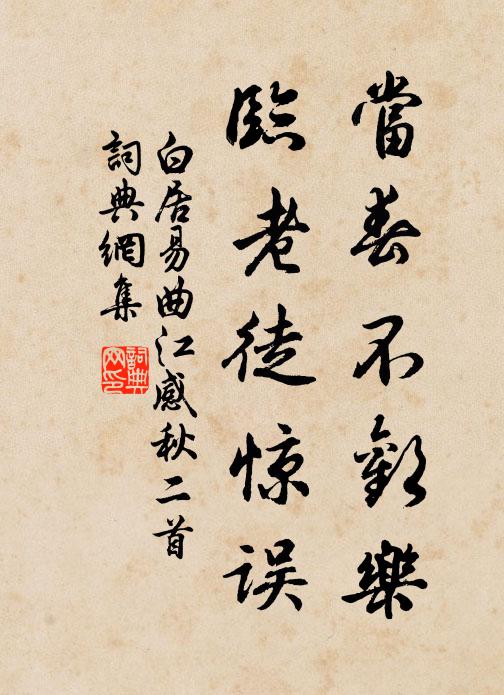 當春不歡樂
臨老徒惊误
白居易曲江感秋二首
詞典網集
詞典網印